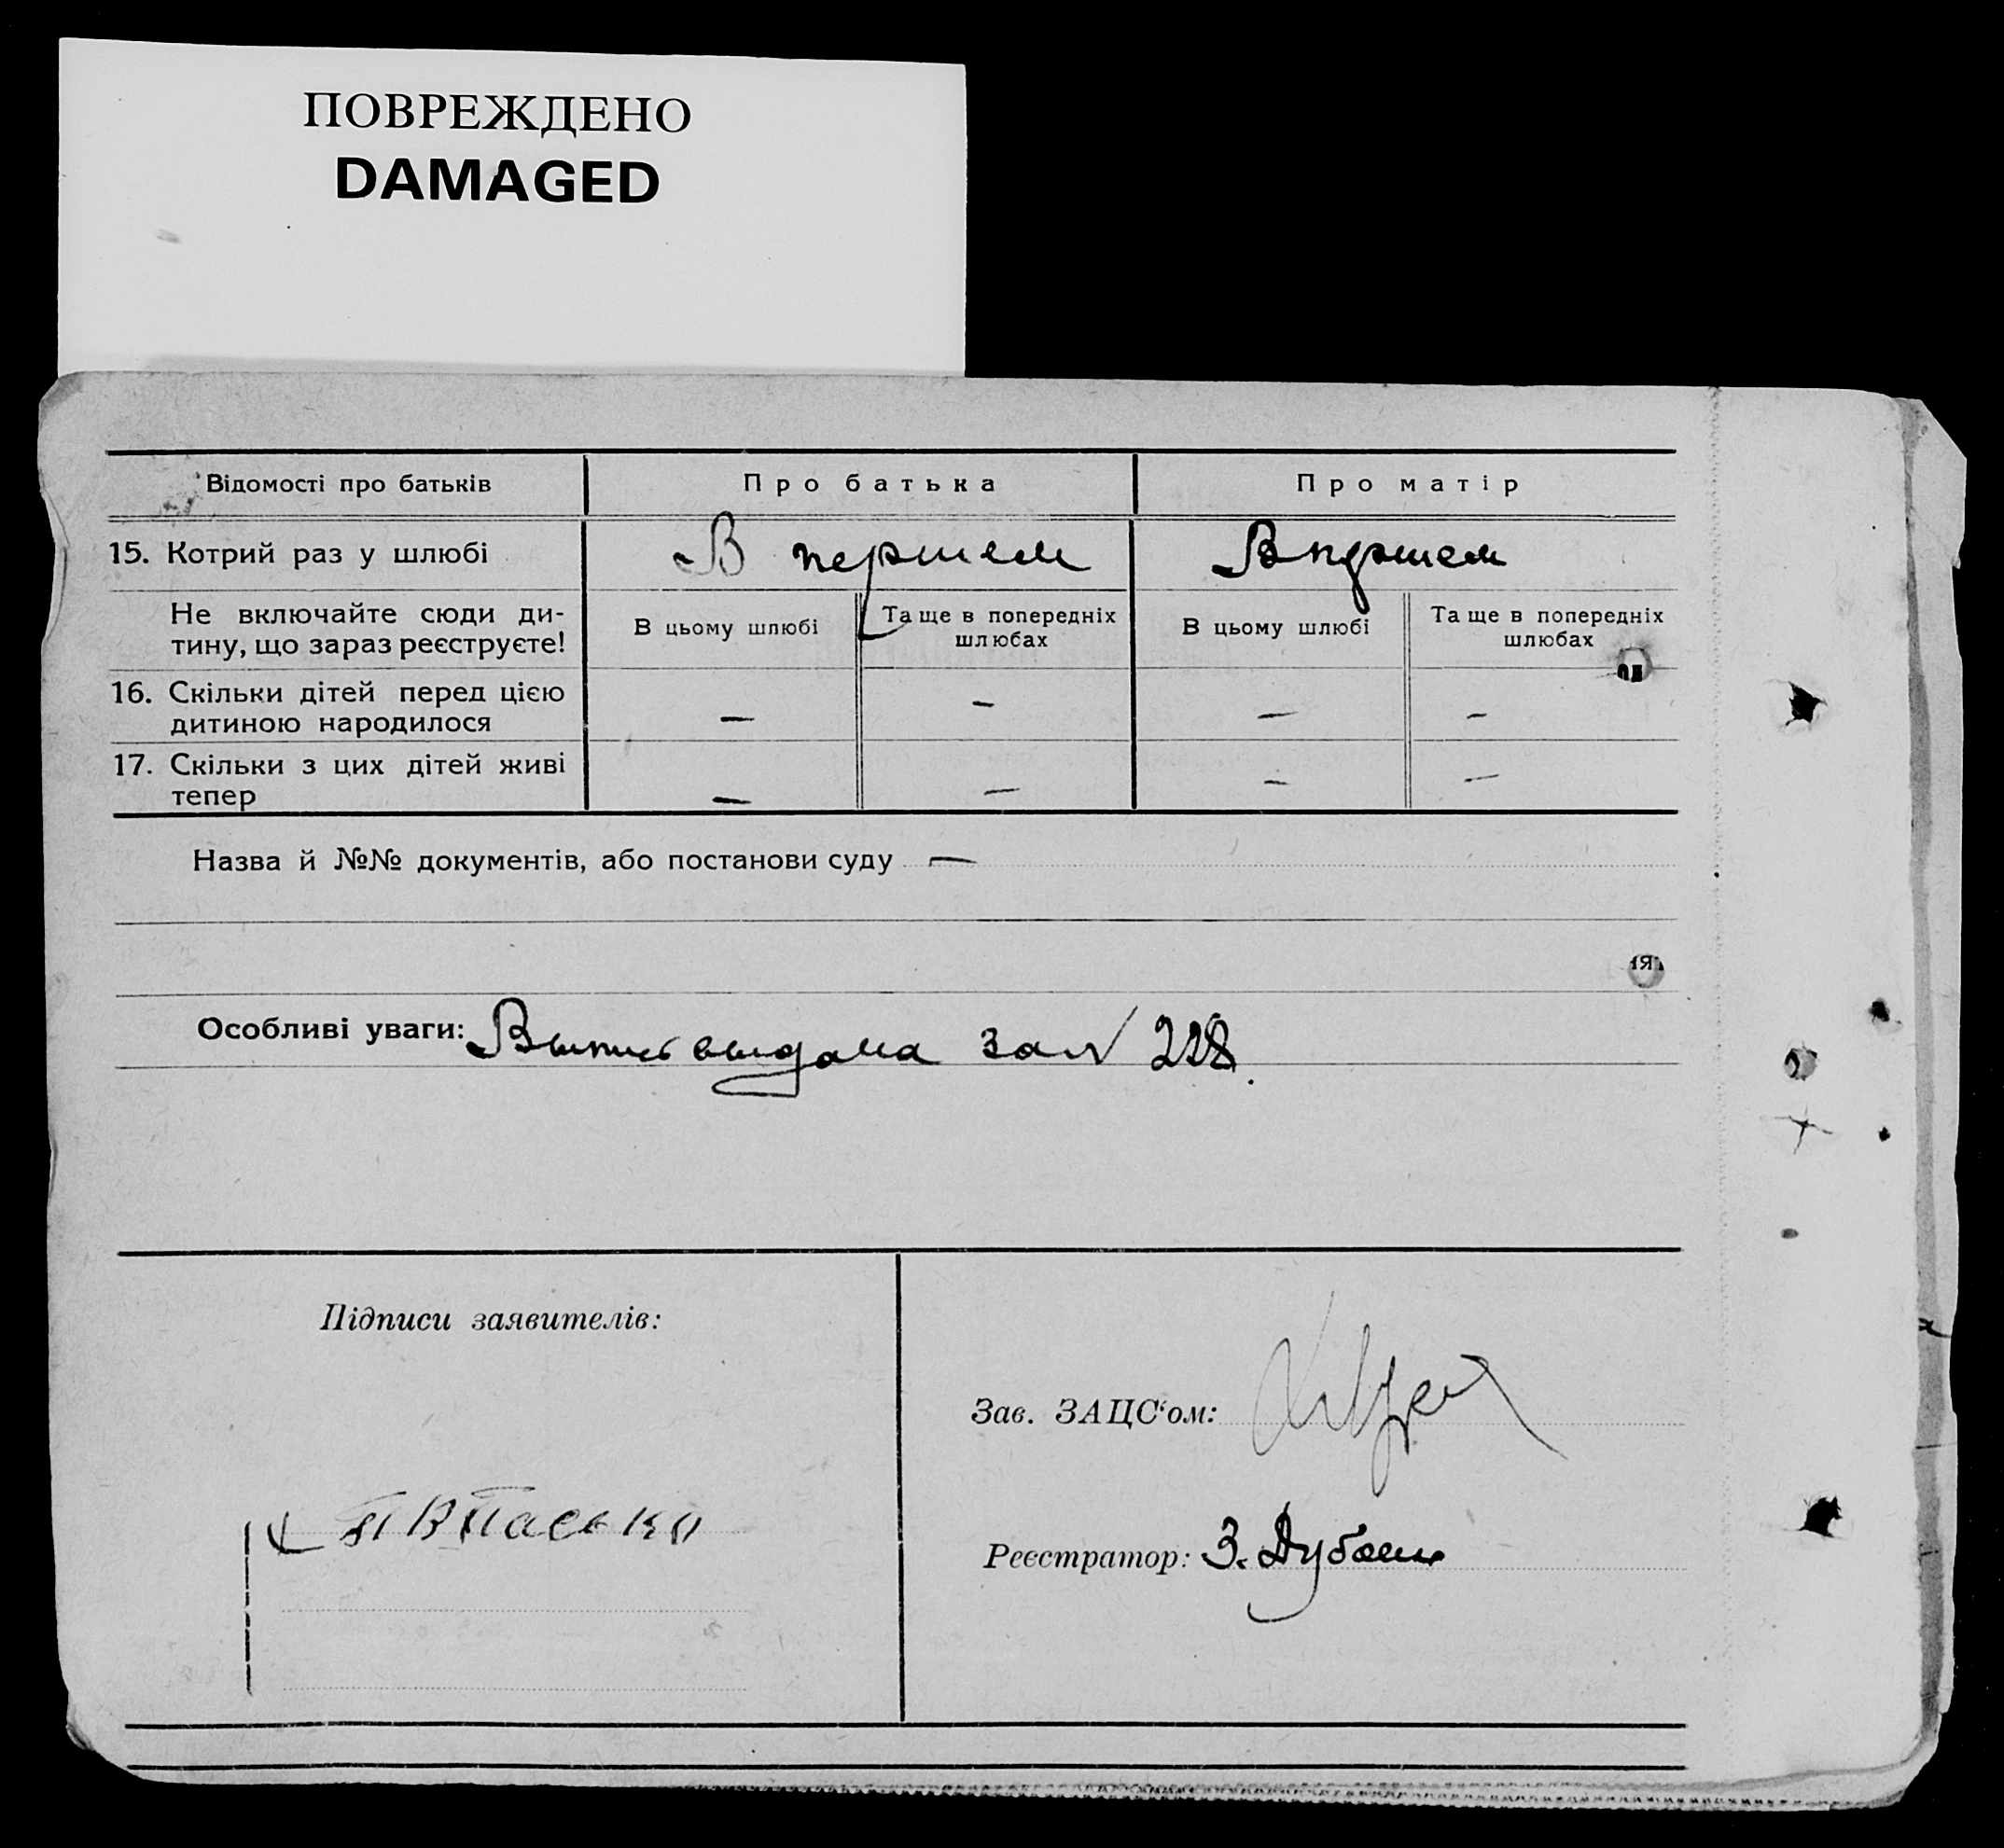 ПОВРЕЖДЕНО
DAMAGED
Відомості про батьків
Про батька
Про матір
15. Котрий раз у шлюбі
В першем
В першем
Не включайте сюди ди-
тину, що зараз реєструєте!
В цьому шлюбі
Та ще в попередніх
шлюбах
В цьому шлюбі
Та ще в попередніх
шлюбах
16. Скільки дітей перед цією
дитиною народилося
— — — —
17. Скільки з цих дітей живі
тепер
— — — —
Назва й №№ документів, або постанови суду —
Особливі уваги: Выпись выдана за № 228.
Підписи заявителів:
Зав. ЗАЦС‘ом:
Пасько
Реєстратор: З.